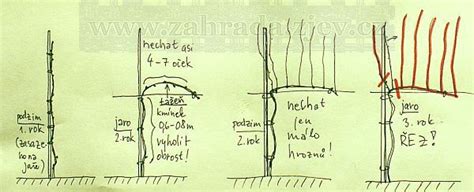 www.zahradazijev.cz
podzim
1. rok
(zasaze
no na
jaře)
nechat asi
4-7 oček
jaro
2. rok
tažeň
kmínek
0,6-0,8m
vyholit
obrost!
podzim
2. rok
nechat
jen
málo
hroznů!
jaro
3. rok
ŘEZ!